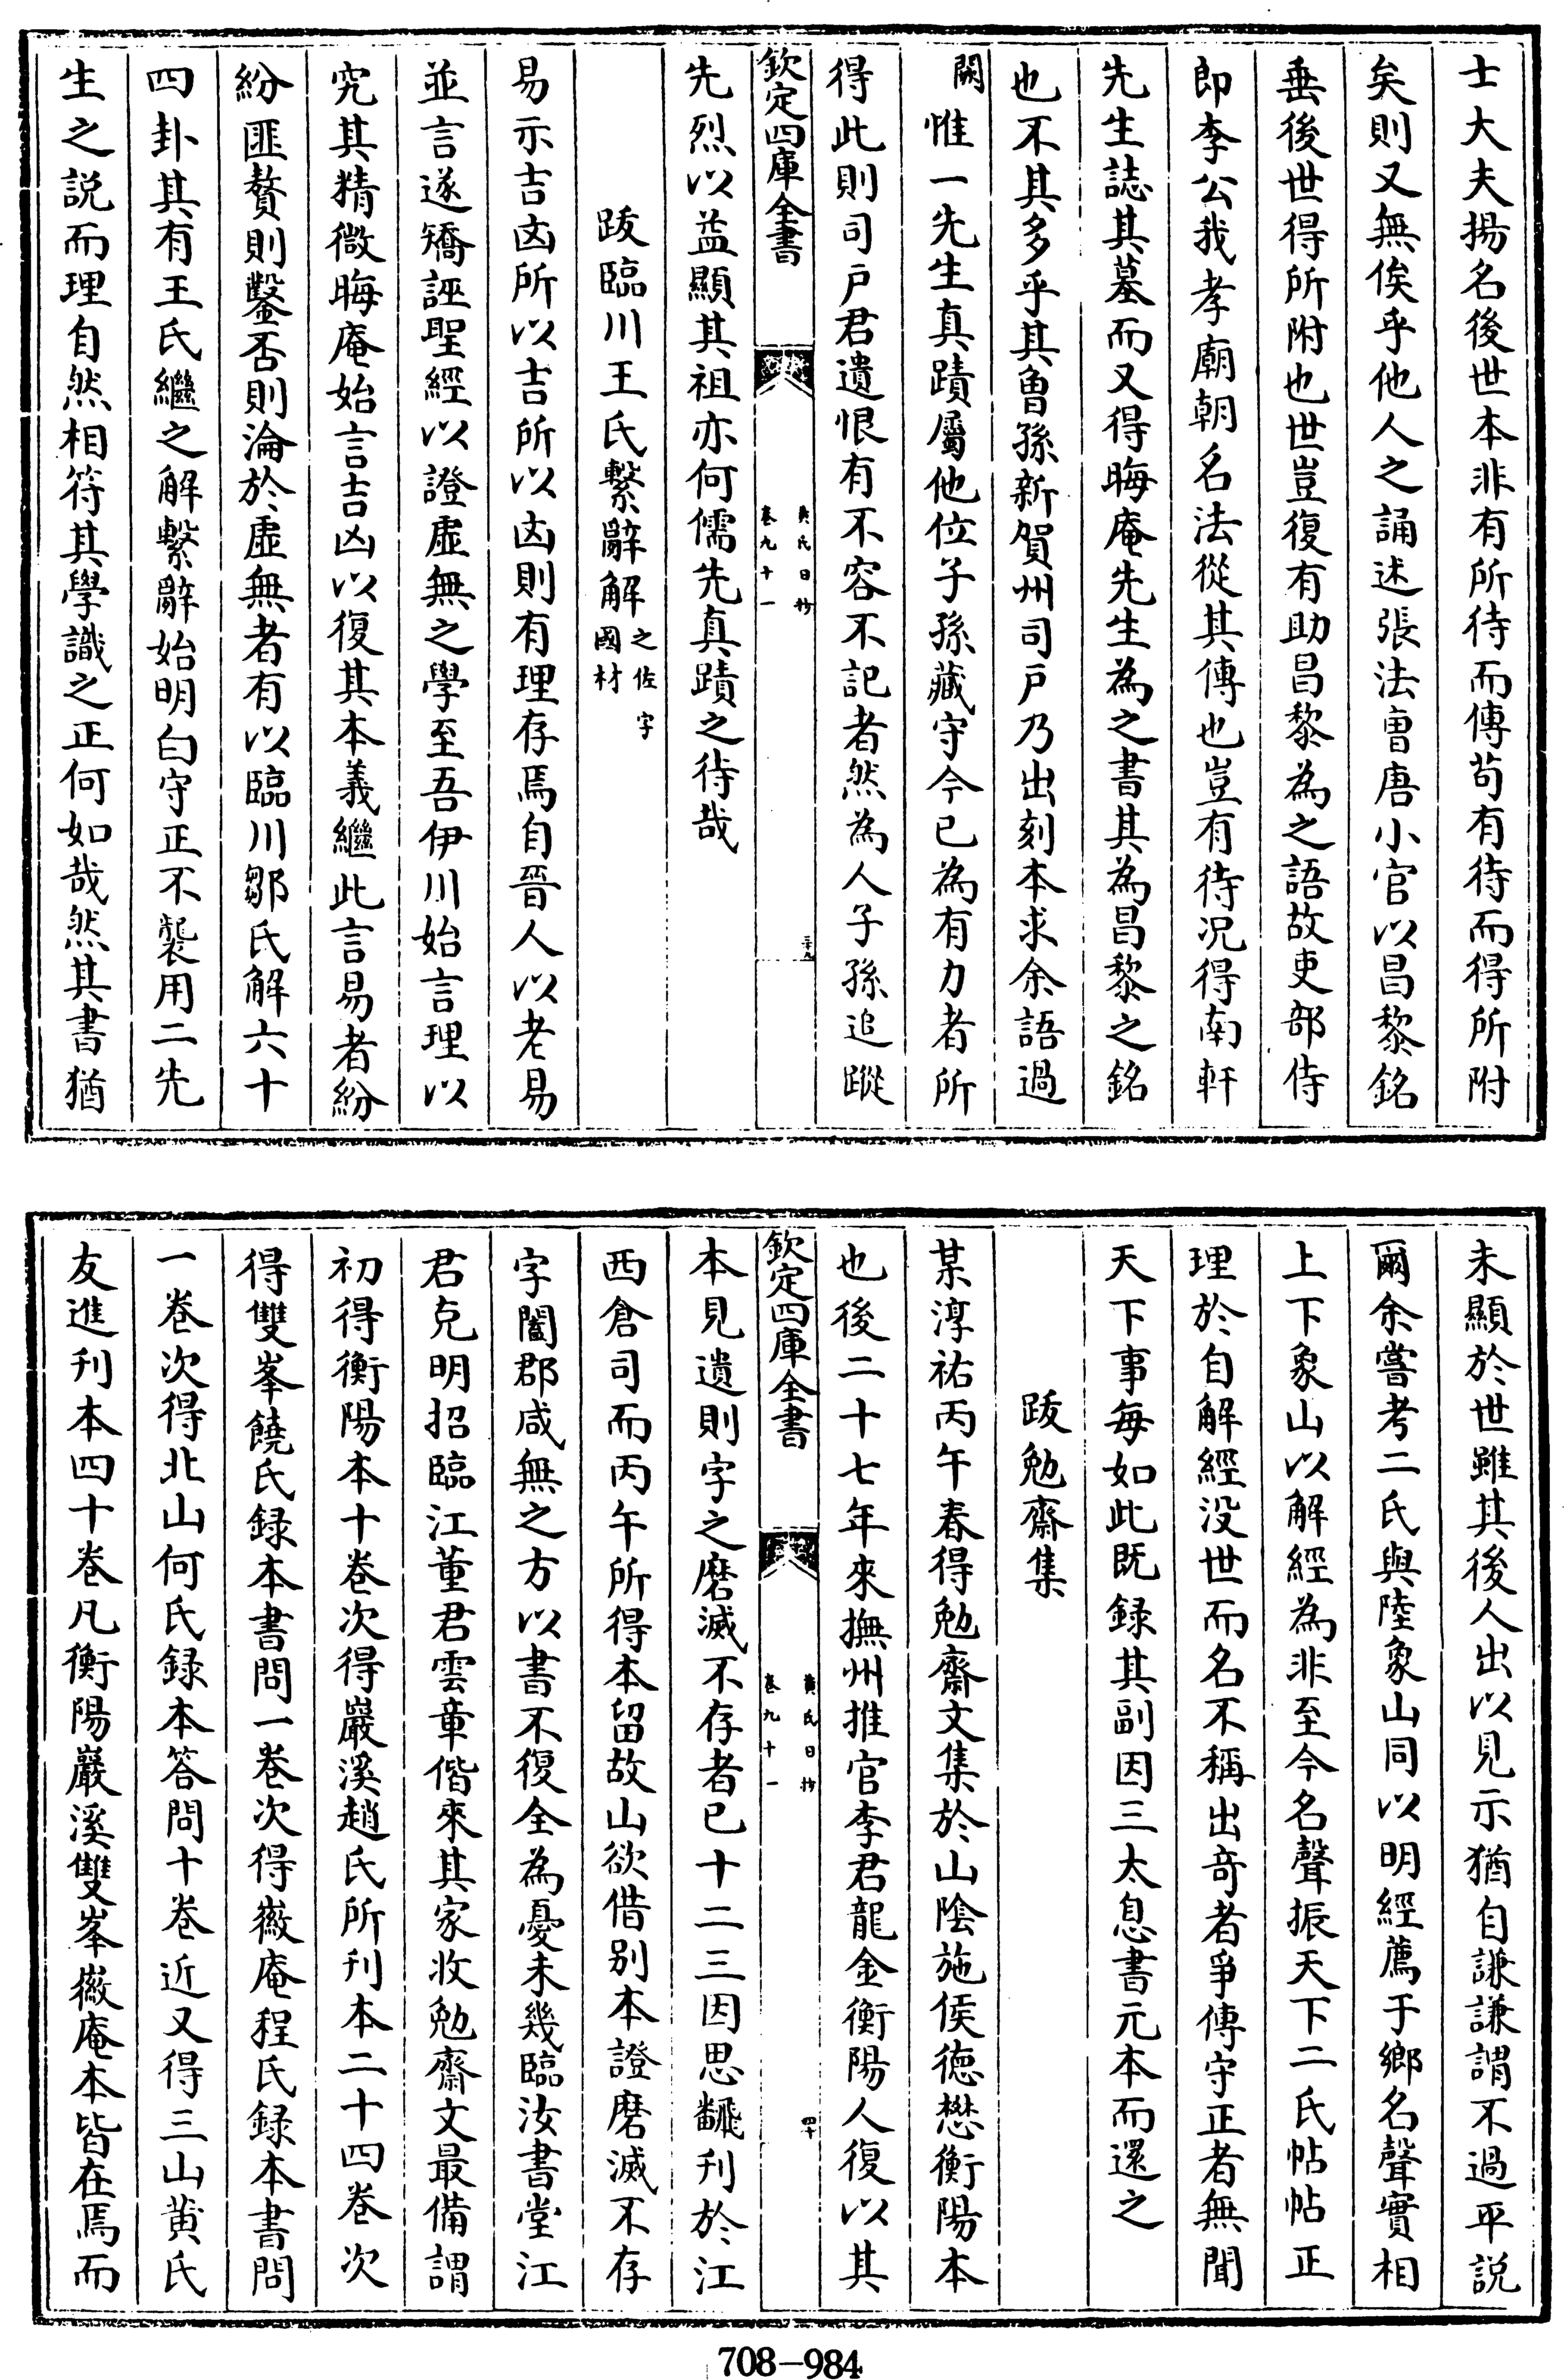 士大夫揚名後世本非有所待而傳苟有待而得所附
矣則又無俟乎他人之誦述張法曺唐小官以昌黎銘
垂後世得所附也世豈復有助昌黎為之語故吏部侍
即李公我孝廟朝名法從其傳也豈有待况得南軒
先生誌其墓而又得晦庵先生為之書其為昌黎之銘
也不其多乎其曾孫新賀州司戸乃出刻本求余語過
闕惟一先生真蹟屬他位子孫藏守今已為有力者所
得此則司戸君遺恨有不容不記者然為人子孫追蹤
欽定四庫全書
黃氏日抄
卷九十一
三十九
先烈以益顯其祖亦何儒先真蹟之待哉
跋臨川王氏繫辭解之佐字國材
易示吉凶所以吉所以凶則有理存焉自晉人以老易
並言遂矯誣聖經以證虛無之學至吾伊川始言理以
究其精微晦庵始言吉凶以復其本義繼此言易者紛
紛匪贅則鑿否則淪於虛無者有以臨川鄒氏解六十
四卦其有王氏繼之解繫辭始明白守正不襲用二先
生之説而理自然相符其學識之正何如哉然其書猶
未顯於世雖其後人出以見示猶自謙謙謂不過平説
爾余嘗考二氏與陸象山同以明經薦于鄉名聲實相
上下象山以解經為非至今名聲振天下二氏帖帖正
理於自解經没世而名不稱出竒者爭傳守正者無聞
天下事每如此既録其副因三太息書元本而還之
跋勉齋集
某淳祐丙午春得勉齋文集於山陰施侯徳懋衡陽本
也後二十七年來撫州推官李君龍金衡陽人復以其
欽定四庫全書
黃氏日抄
卷九十一
四十
本見遺則字之磨滅不存者已十二三因思飜刋於江
西倉司而丙午所得本留故山欲借别本證磨滅不存
字闔郡咸無之方以書不復全為憂未幾臨汝書堂江
君克明招臨江董君雲章偕來其家收勉齋文最備謂
初得衡陽本十卷次得巖溪趙氏所刋本二十四卷次
得雙峯饒氏録本書問一卷次得徽庵程氏録本書問
一卷次得北山何氏録本答問十卷近又得三山黄氏
友進刋本四十卷凡衡陽巖溪雙峯徽庵本皆在焉而
708-984